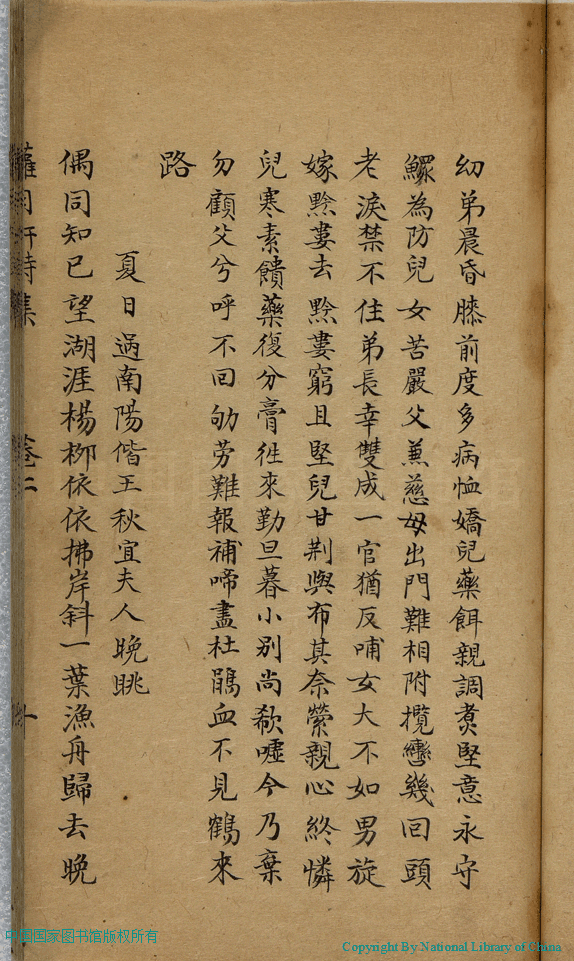 幼弟晨昏膝前度多病恤嬌兒藥餌親調煑堅意永守
鰥為防兒女苦嚴父蒹慈母出門難相附攬轡幾回頭
老淚禁不住弟長幸雙成一官猶反哺女大不如男旋
嫁黔婁去黔婁窮且堅兒甘荆與布其奈縈親心終憐
兒寒素饋藥復分膏徃來勤旦暮小别尚欷噓今乃棄
勿顧父兮呼不回劬劳難報補啼盡杜鵑血不見鶴來
路
夏日過南陽偕王秋宜夫人晚眺
偶同知已望湖涯楊栁依依拂岸斜一葉漁舟歸去晚
詩集
卷二
中国国家图书馆版权所有
Copyright By National Library of China